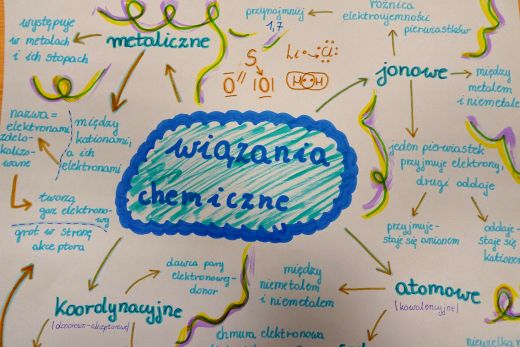 występuje
w metalach
i ich stopach
metaliczne
przynajmniej
1,7
różnica
elektroujemności
pierwiastków
jonowe
między
metalem
i niemetalem
jeden pierwiastek
przyjmuje elektrony,
drugi oddaje
przyjmuje-
staje się anionem
oddaje-
staje się
kationem
nazwa =
elektronami
zdelo-
kalizo-
wane
między
kationami,
a ich
elektronami
tworzą
gaz elektrono-
wy
grot w stronę
akceptora
S
O O
Li Cl:
H H
wiązania
chemiczne
koordynacyjne
(donorowo-akceptorowe)
dawca pary
elektronowej-
donor
między
niemetalem
i niemetalem
atomowe
(kowalencyjne)
chmura elektronowa
niewielka